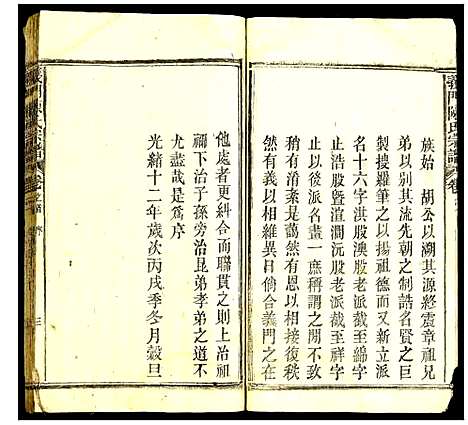 義門陳氏宗譜
族始　胡公以溯其源終震章祖兄
弟以別其流先朝之制誥名賢之巨
製搜羅筆之以揚祖德而又新立派
名十六字淇股澳股老派截至綿字
止浩股暨渲潤沅股老派截至祥字
止以後派名畫一庶稱謂之間不致
有淆亂來是藹然有恩以相接復秩
然有義以相維異日倘合義門之在
他處者更糾合而聯貫之則上治祖
禰下治子孫旁治昆弟孝弟之道不
尤盡哉是為序
光緒十二年歲次丙戌季冬月穀旦